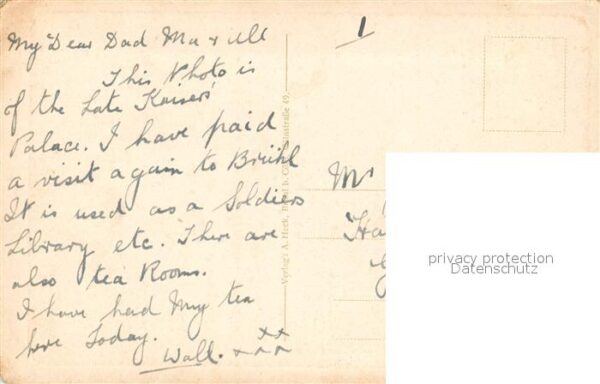 My Dear Dad Ma & All
This Photo is
of the Late Kaisers'
Palace. I have paid
a visit again to Brühl
It is used as a Soldiers
Library etc. There are
also tea Rooms.
I have had My tea
here Today.
Wall. xxxx
1
Verlag: A. Heck,
Mr
privacy protection
Datenschutz